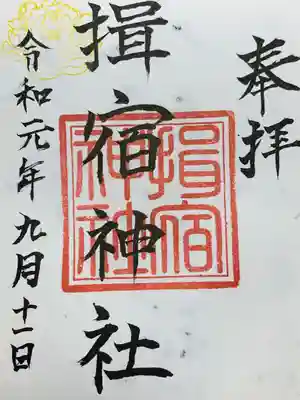 奉拝
揖宿神社
揖宿
神社
令和元年九月十一日